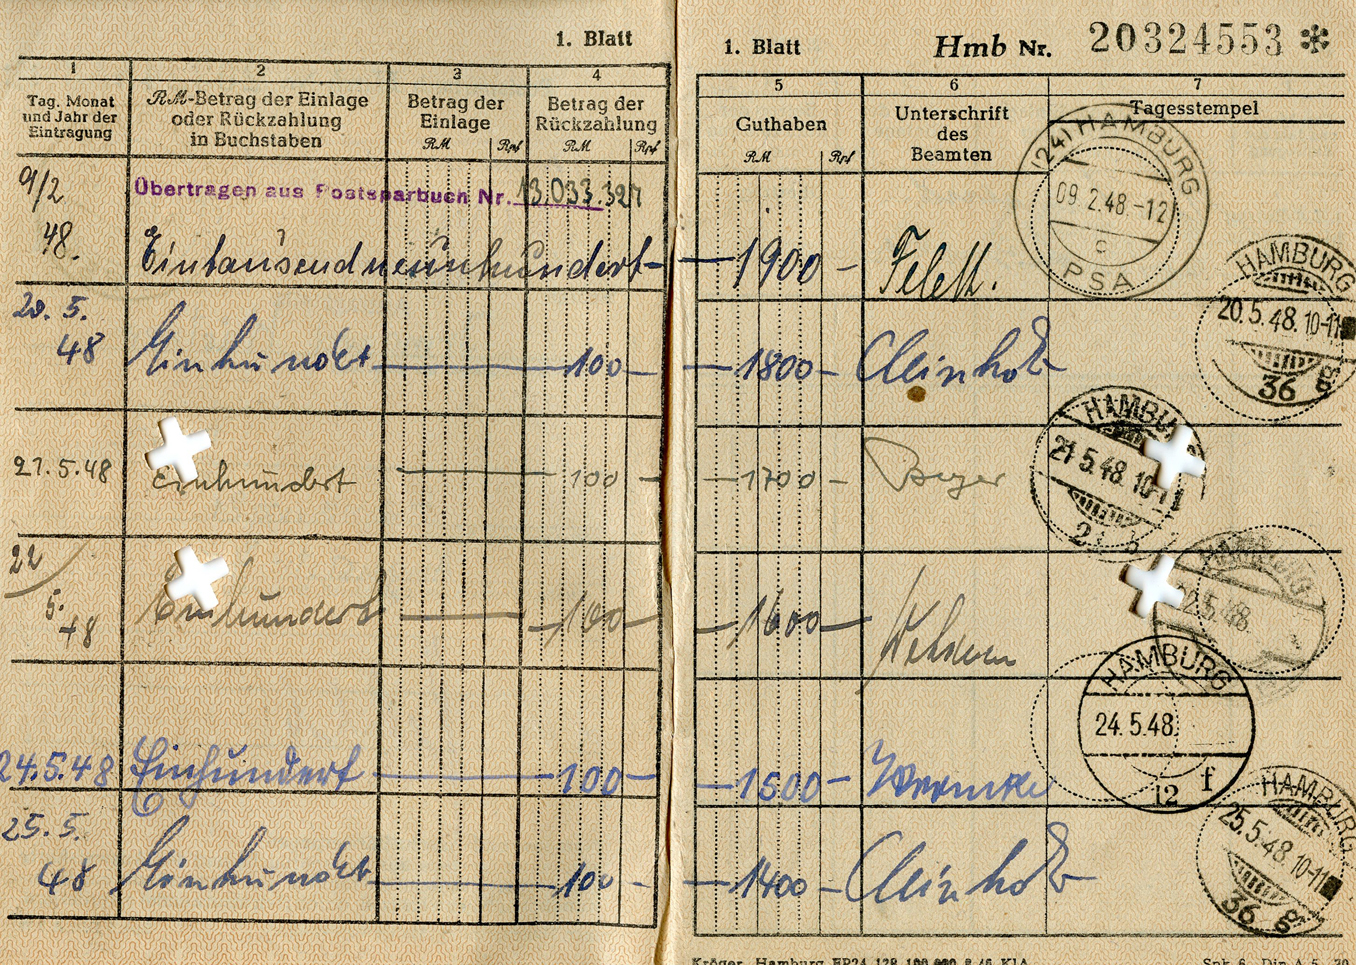 1. Blatt
1 2 3 4
Tag. Monat und Jahr der Eintragung
RM-Betrag der Einlage oder Rückzahlung in Buchstaben
Betrag der Einlage
RM Rpf
Betrag der Rückzahlung
RM Rpf
9/2 48.
Übertragen aus Postsparbuch Nr. 13.033.327
Eintausendneunhundert
20. 5. 48 Einhundert 100
21.5.48 Einhundert 100
22/5. 48 Einhundert 100
24.5.48 Einhundert 100
25.5. 48 Einhundert 100
1. Blatt Hmb Nr. 20324553 ✻
5 6 7
Guthaben
RM Rpf
Unterschrift des Beamten
Tagesstempel
1900
(24) HAMBURG
09.2.48.-12
c
PSA
1800
HAMBURG
20.5.48.10-11
36 g
1700 Beyer
HAMBURG
21.5.48.10-11
1600
HAMBURG
2.5.48.
1500
HAMBURG
24.5.48.
12 f
1400
HAMBURG
25.5.48.10-11
36 g
Kröger, Hamburg
Din A 5